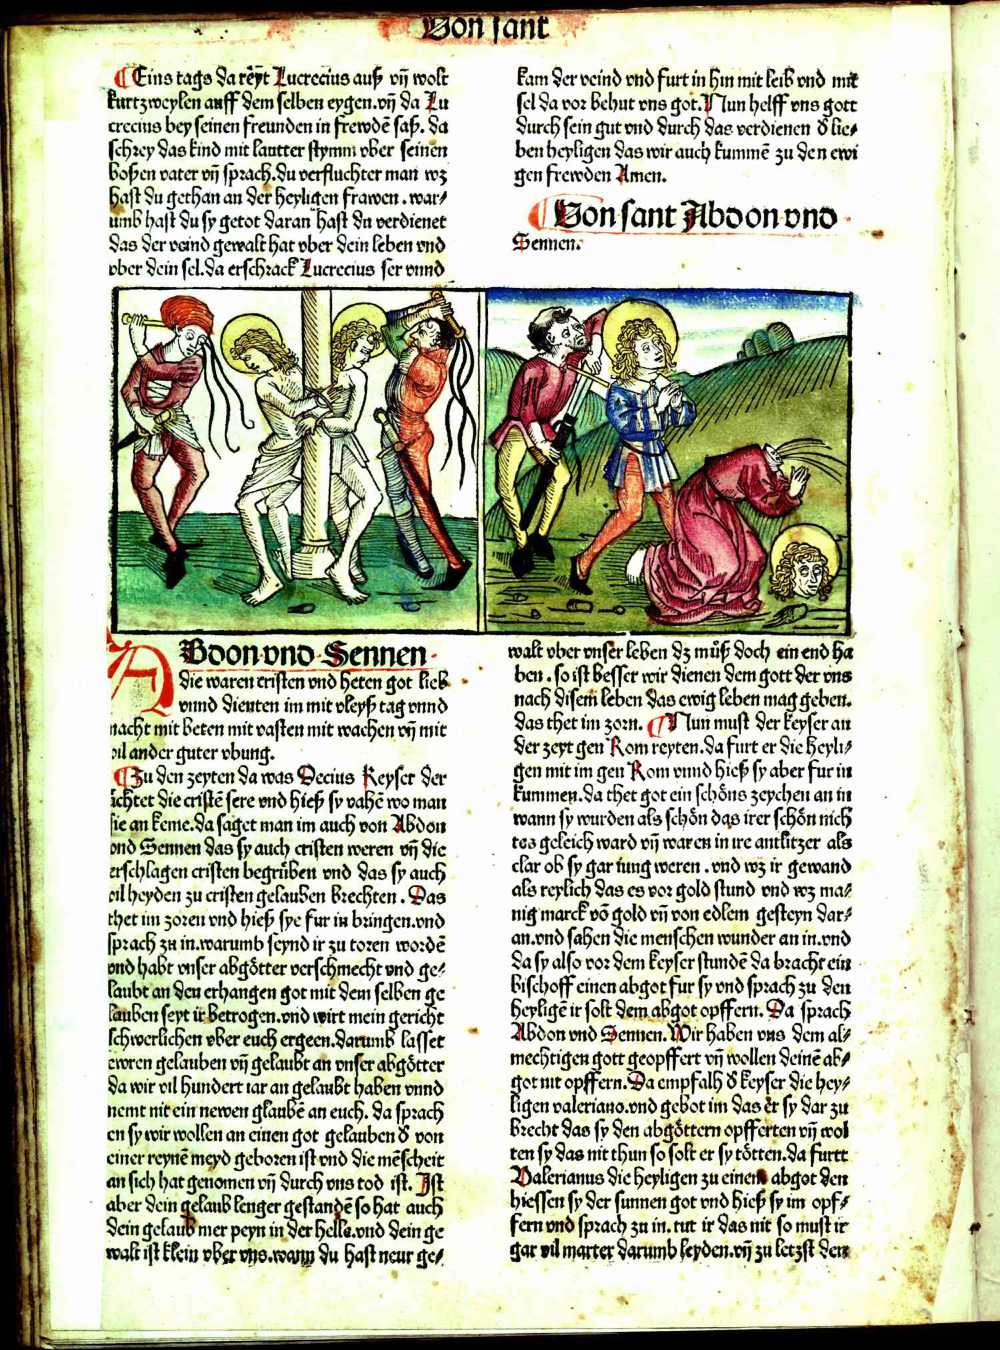 Von sant
Eins tags da reyt Lucrecius auß vñ wolt
kurtzweylen auff dem selben eygen. vñ da Lu
crecius bey seinen freunden in frewdē saß. da
schrey das kind mit lautter stymm vber seinen
boßen vater vñ sprach. du verfluchter man wz
hast du gethan an der heyligen frawen. war⸗
umb hast du sy getot daran hast du verdienet
das der veind gewalt hat vber dein leben vnd
vber dein sel. da erschrack Lucrecius ser vnnd
kam der veind vnd furt in hin mit leib vnd mit
sel da vor behut vns got. Nun helff vns gott
durch sein gut vnd durch das verdienen d̕ lie⸗
ben heyligen das wir auch kummē zu den ewi
gen frewden Amen.
Von sant Abdon vnd
Sennen.
ABdon vnd Sennen
die waren cristen vnd heten got lieb
vnnd dienten im mit vleyß tag vnnd
nacht mit beten mit vasten mit wachen vñ mit
vil ander guter vbung.
Zu den zeyten da was Decius Keyser der
ächtet die cristē sere vnd hieß sy vahē wo man
sie an keme. da saget man im auch von Abdon
vnd Sennen das sy auch cristen weren vñ die
erschlagen cristen begrüben vnd das sy auch
vil heyden zu cristen gelauben brechten. Das
thet im zoren vnd hieß sye fur in bringen. vnd
sprach zu in. warumb seynd ir zu toren wordē
vnd habt vnser abgötter verschmecht vnd ge⸗
laubt an den erhangen got mit dem selben ge
lauben seyt ir betrogen. vnd wirt mein gericht
schwerlichen vber euch ergeen. darumb lasset
ewren gelauben vñ gelaubt an vnser abgötter
da wir vil hundert iar an gelaubt haben vnnd
nemt nit ein newen glaubē an euch. da sprach
en sy wir wollen an einen got gelauben d̕ von
einer reynē meyd geboren ist vnd die mēscheit
an sich hat genomen vñ durch vns tod ist. Ist
aber dein gelaub lenger gestandē so hat auch
dein gelaub mer peyn in der helle. vnd dein ge
walt ist klein vber vns. wann du hast neur ge⸗
walt vber vnser leben dz můß doch ein end ha
ben. so ist besser wir dienen dem gott der vns
nach disem leben das ewig leben mag geben.
das thet im zorn. Nun must der keyser an
der zeyt gen Rom reyten. da furt er die heyli⸗
gen mit im gen Rom vnnd hieß sy aber fur in
kummen. da thet got ein schöns zeychen an in
wann sy wurden als schön das irer schön nich
tes geleich ward vñ waren in ire antlitzer als
clar ob sy gar iung weren. vnd wz ir gewand
als reylich das es vor gold stund vnd wz ma⸗
nig marck vō gold vñ von edlem gesteyn dar⸗
an. vnd sahen die menschen wunder an in. vnd
da sy also vor dem keyser stundē da bracht ein
bischoff einen abgot fur sy vnd sprach zu den
heyligē ir solt dem abgot opffern. Da sprach
Abdon vnd Sennen. Wir haben vns dem al⸗
mechtigen gott geopffert vñ wollen deinē ab⸗
got nit opffern. Da empfalh d̕ keyser die hey⸗
ligen valeriano. vnd gebot im das er sy dar zu
brecht das sy den abgöttern opfferten vñ wol
ten sy das nit thun so solt er sy tötten. da furt
Valerianus die heyligen zu einem abgot den
hiessen sy der sunnen got vnd hieß sy im opf⸗
fern vnd sprach zu in. tut ir das nit so must ir
gar vil marter darumb leyden. vñ zu letzst den